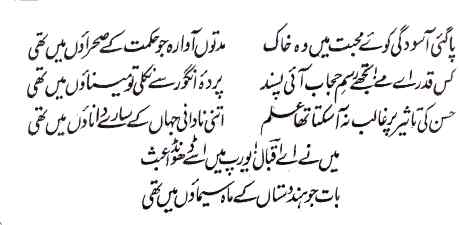 پا گئی آسودگی کوئے محبت میں وہ خاک مدتوں آوارہ جو حکمت کے صحراؤں میں تھی
کس قدر اے مے! تجھے رسمِ حجاب آئی پسند پردۂ انگور سے نکلی تو میناؤں میں تھی
حسن کی تاثیر پر غالب نہ آ سکتا تھا علم اتنی نادانی جہاں کے سارے داناؤں میں تھی
میں نے اے اقبال یورپ میں اسے ڈھونڈا عبث
بات جو ہندوستاں کے ماہ سیماؤں میں تھی